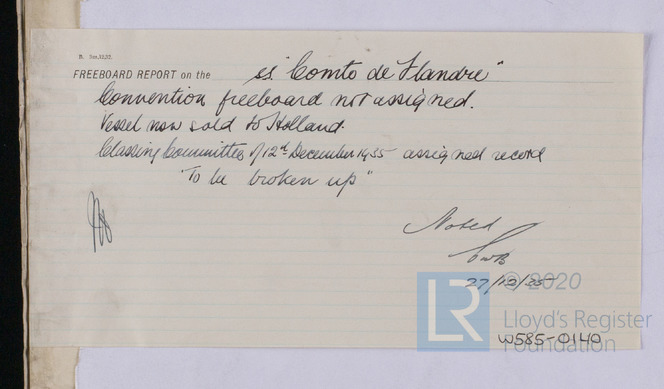 FREEBOARD REPORT on the ss "Comte de Flandre"
Convention freeboard not assigned.
Vessel now sold to Holland.
Classing Committee of 12th December 1935 assigned record
"To be broken up"
Noted
27/12/35
LR © 2020
Lloyd's Register
Foundation
W585-0140